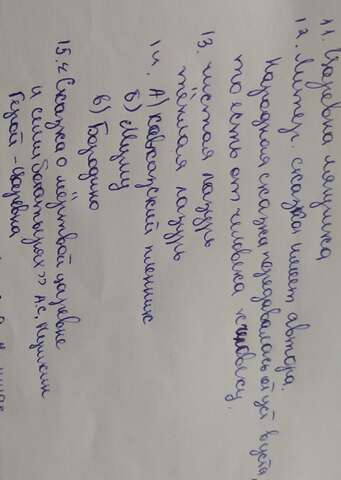 11. Царевна лягушка
12. Литер. сказка имеет автора.
Народная сказка передавалась от уст в уста,
то есть от человека человеку.
13. чистая лазурь
тёплая лазурь
14. А) Кавказский пленник
б) Муму
в) Бородино
15. «Сказка о мёртвой царевне
и семи богатырях» А.С. Пушкин
Герой - царевна